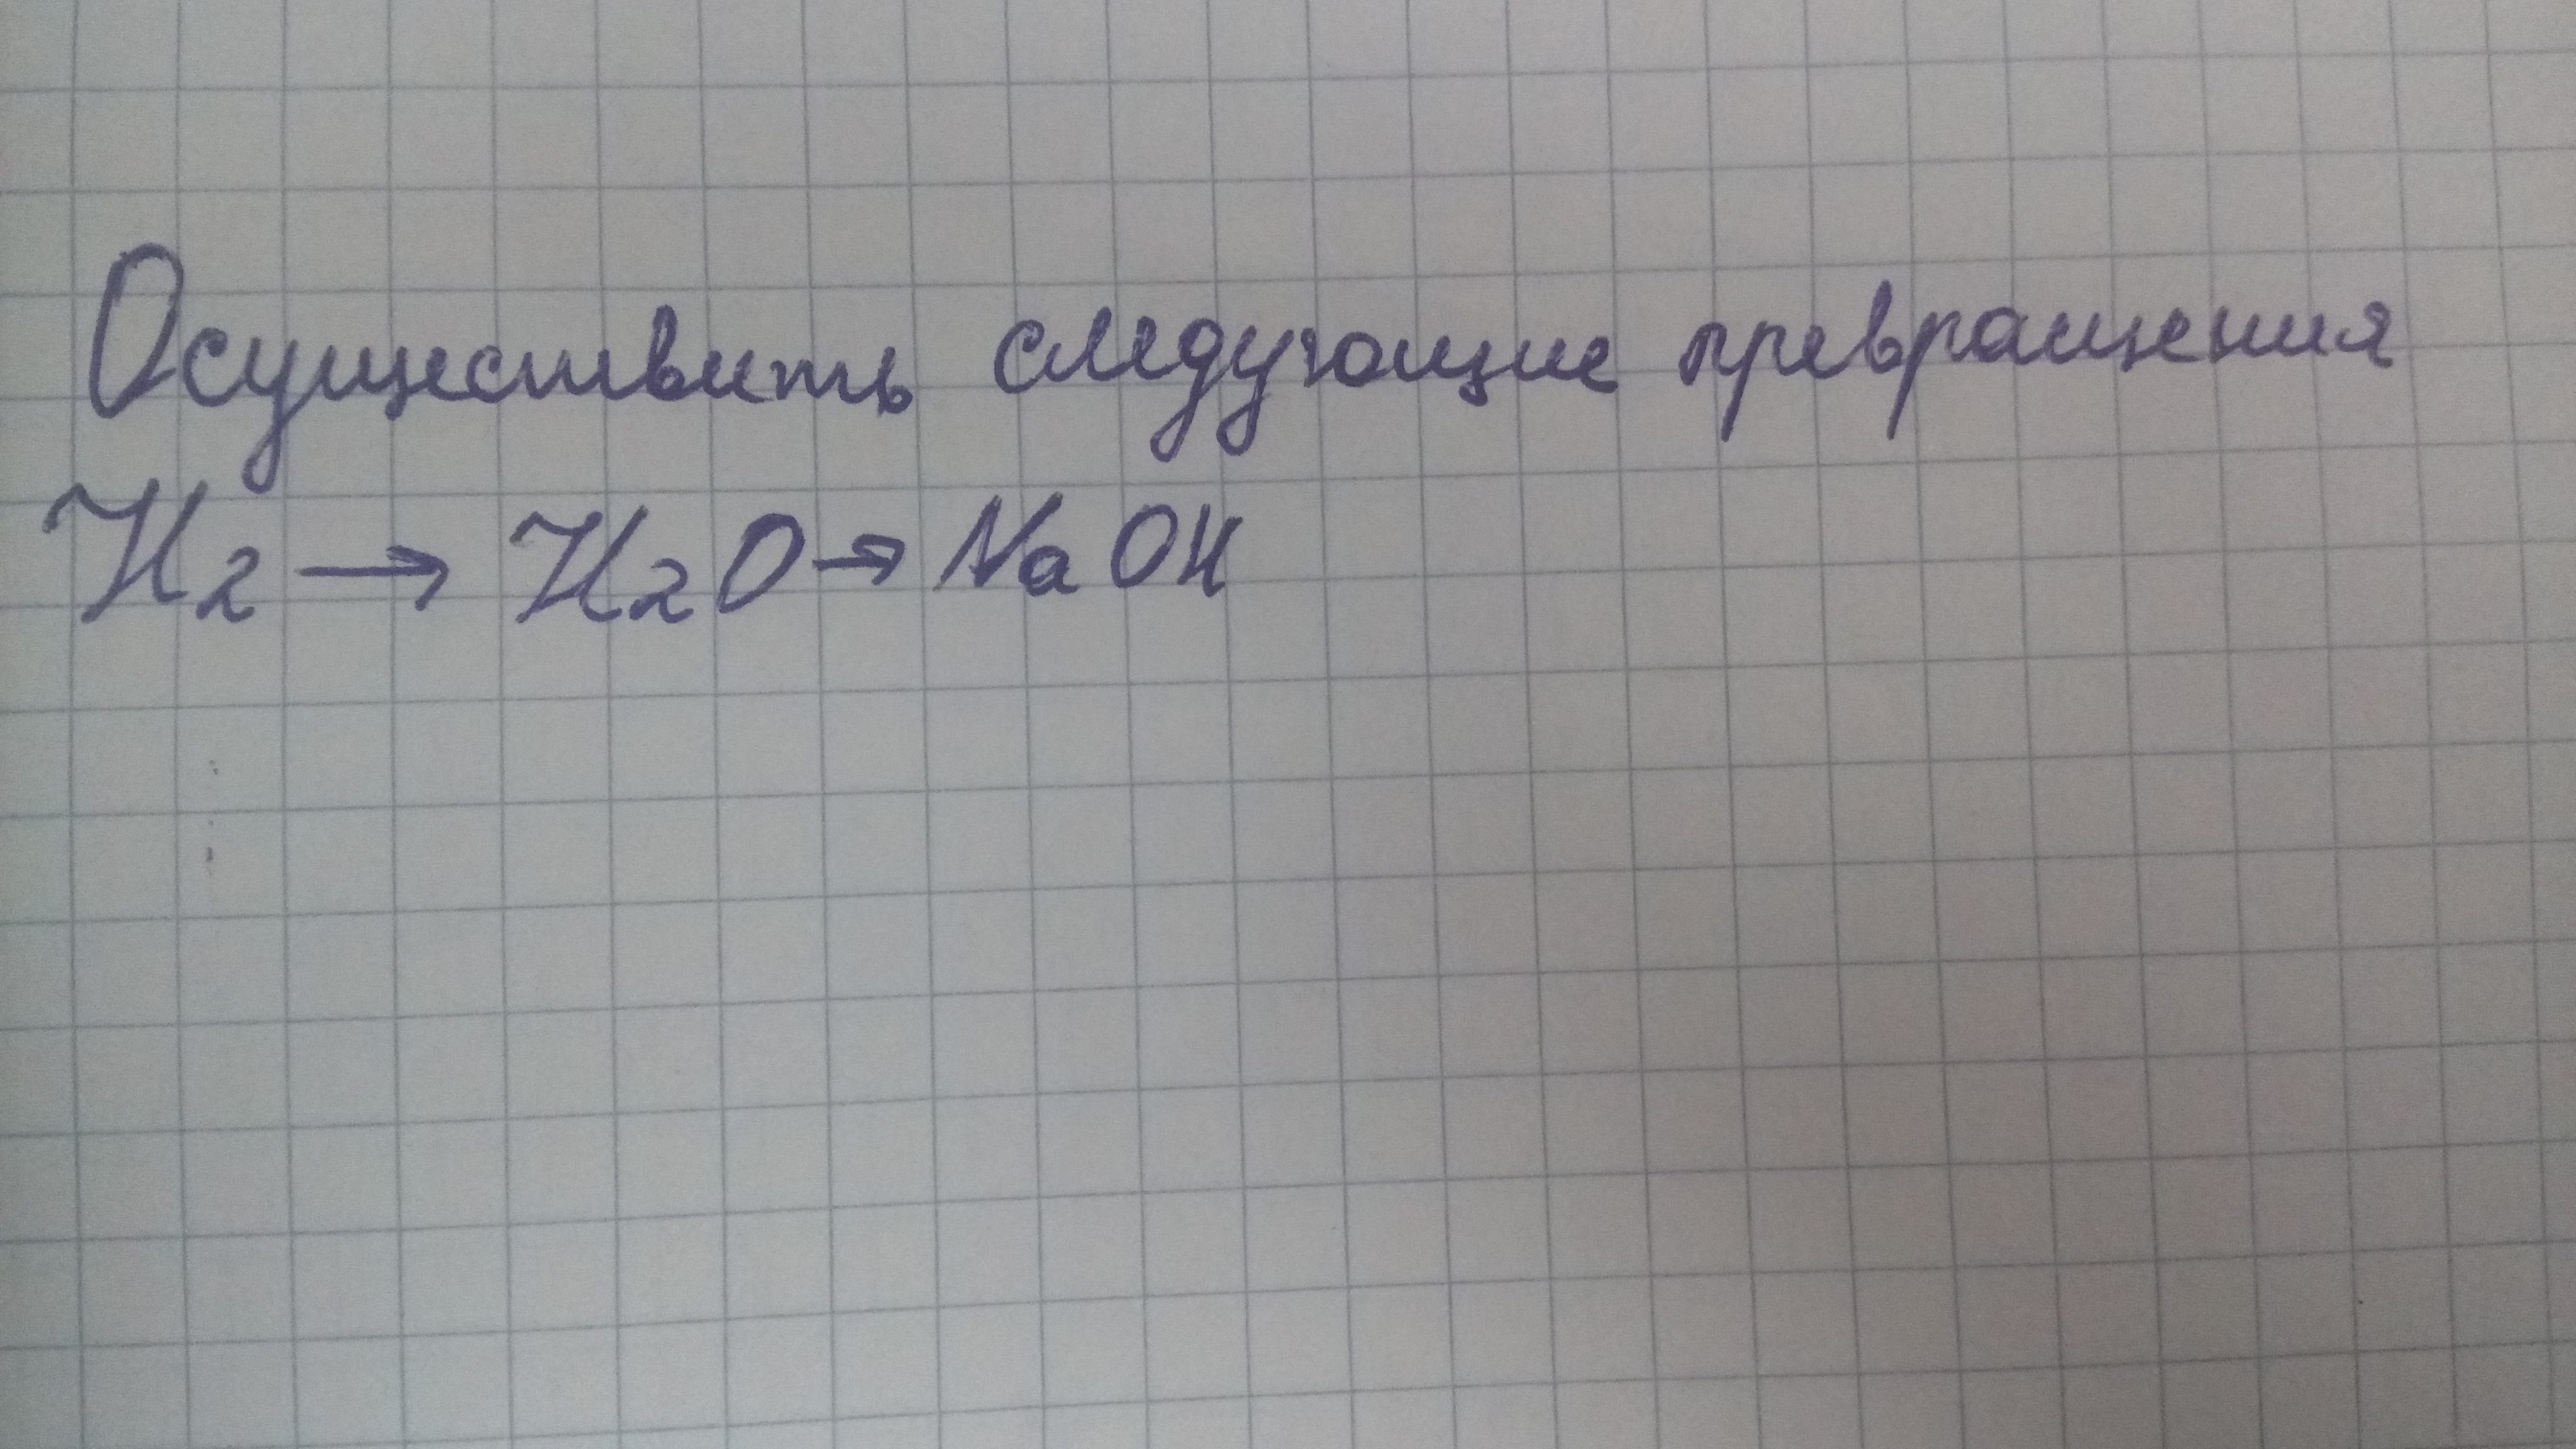 Осуществить следующие превращения
H₂ → H₂O → NaOH